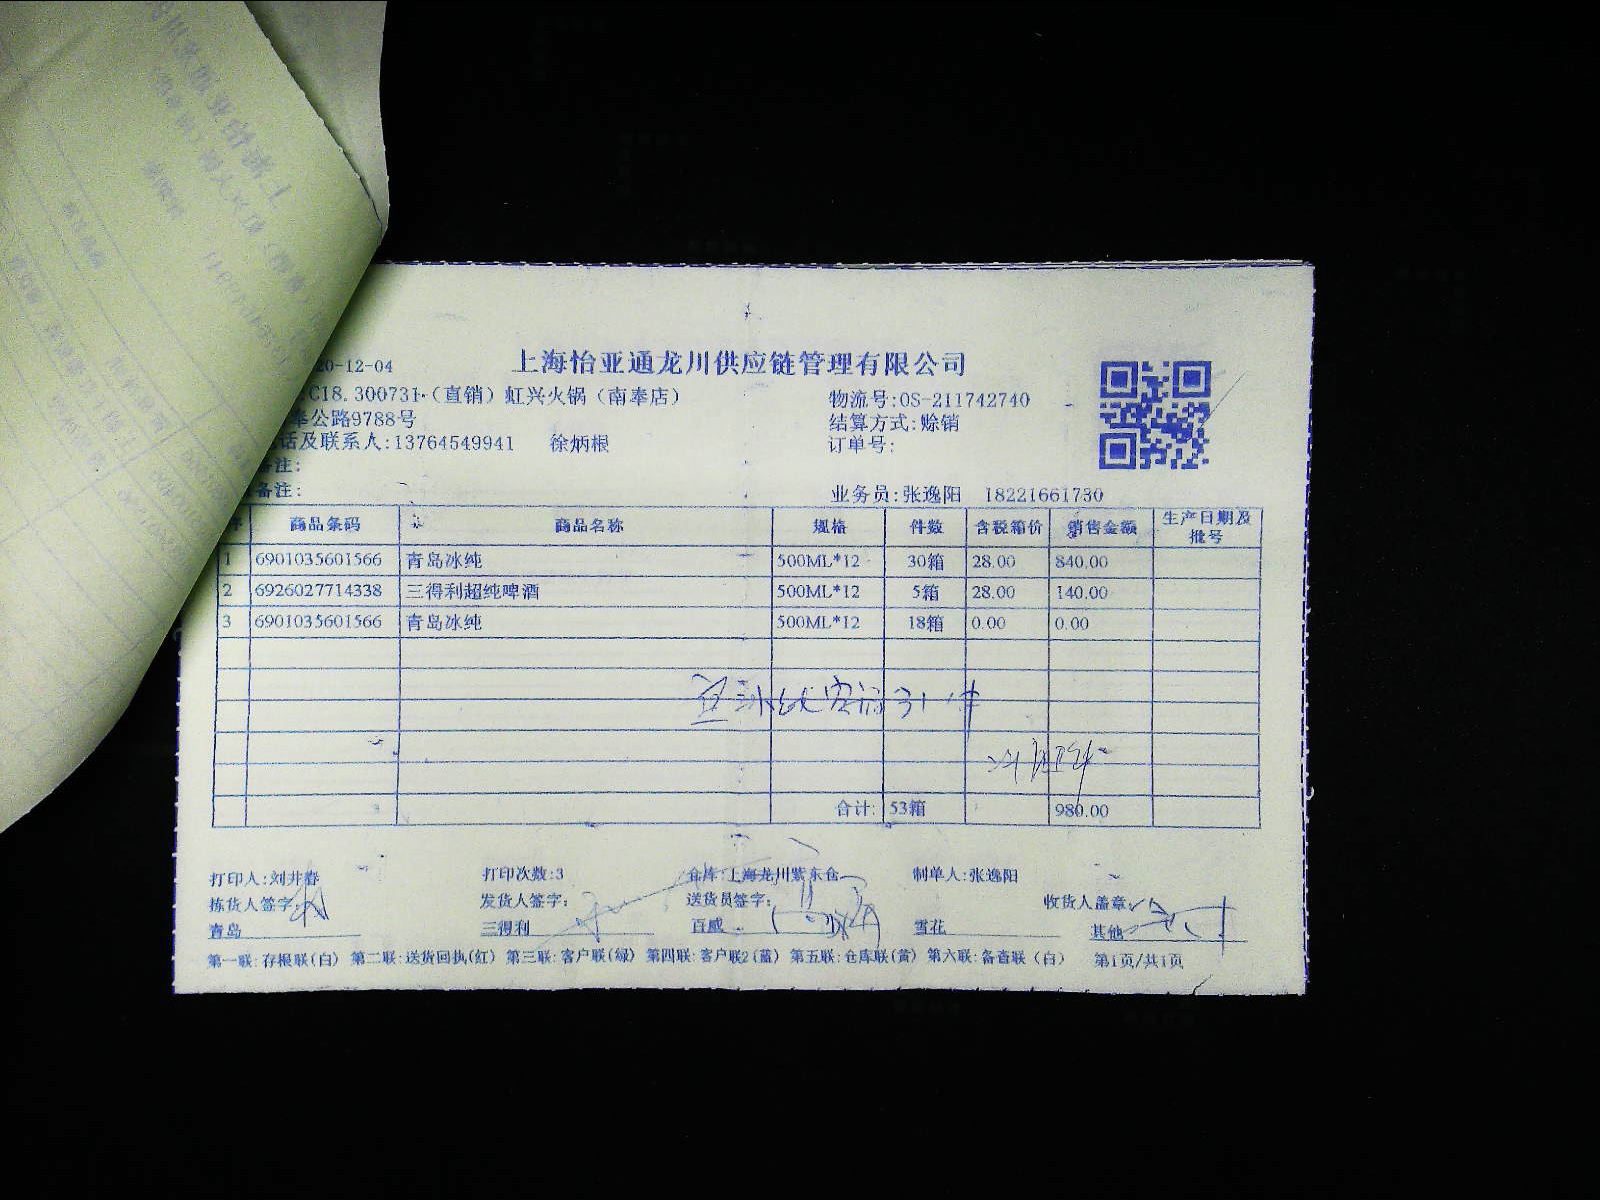 上海怡亚通龙川供应链管理有限公司
20-12-04
:C18.300731-（直销）虹兴火锅（南奉店） 物流号:OS-211742740
奉公路9788号 结算方式:赊销
话及联系人:13764549941 徐炳根 订单号:
备注:
备注: 业务员:张逸阳 18221661730
商品条码 商品名称 规格 件数 含税箱价 销售金额 生产日期及批号
1 6901035601566 青岛冰纯 500ML*12 30箱 28.00 840.00
2 6926027714338 三得利超纯啤酒 500ML*12 5箱 28.00 140.00
3 6901035601566 青岛冰纯 500ML*12 18箱 0.00 0.00
合计: 53箱 980.00
打印人:刘井春 打印次数:3 仓库:上海龙川紫东仓 制单人:张逸阳
拣货人签字: 发货人签字: 送货员签字: 收货人盖章:
青岛 三得利 百威 雪花 其他
第一联:存根联(白) 第二联:送货回执(红) 第三联:客户联(绿) 第四联:客户联2(蓝) 第五联:仓库联(黄) 第六联:备查联（白） 第1页/共1页